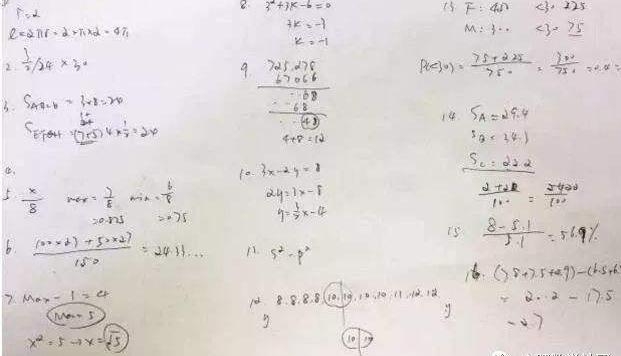 r=2
l=2πr=2×π×2=4π
2. 3/2/24 × 30
3. S = 3×8=24
S = (7+5)4×1/2=24
4.
5. x/8 max = 7/8 min = 6/8
=0.875 =0.75
6. (100×23+50×27)/150 = 24.33...
7. Max - 1 = 4
Max=5
x²=5→x=√5
8. 3²+3K-6=0
3K=-3
K=-1
9. 725,278
67066
..68
..68
..48
4+8=12
10. 3x-2y=8
2y=3x-8
y=3/2x-4
11. s²-p²
12. 8.8.8.8 10.10.10.10.11.12.12
y y
10 10
13. F: 450 <30 225
M: 300 <30 75
P(<30) = (75+225)/750 = 300/750 = 0.4=
14. SA = 29.4
SB = 34.1
SC = 22.2
15. (8-5.1)/5.1 = 56.9%
16. (7.8+7.5+4.9)-(6.5+6
= 20.2 - 17.5
= 2.7